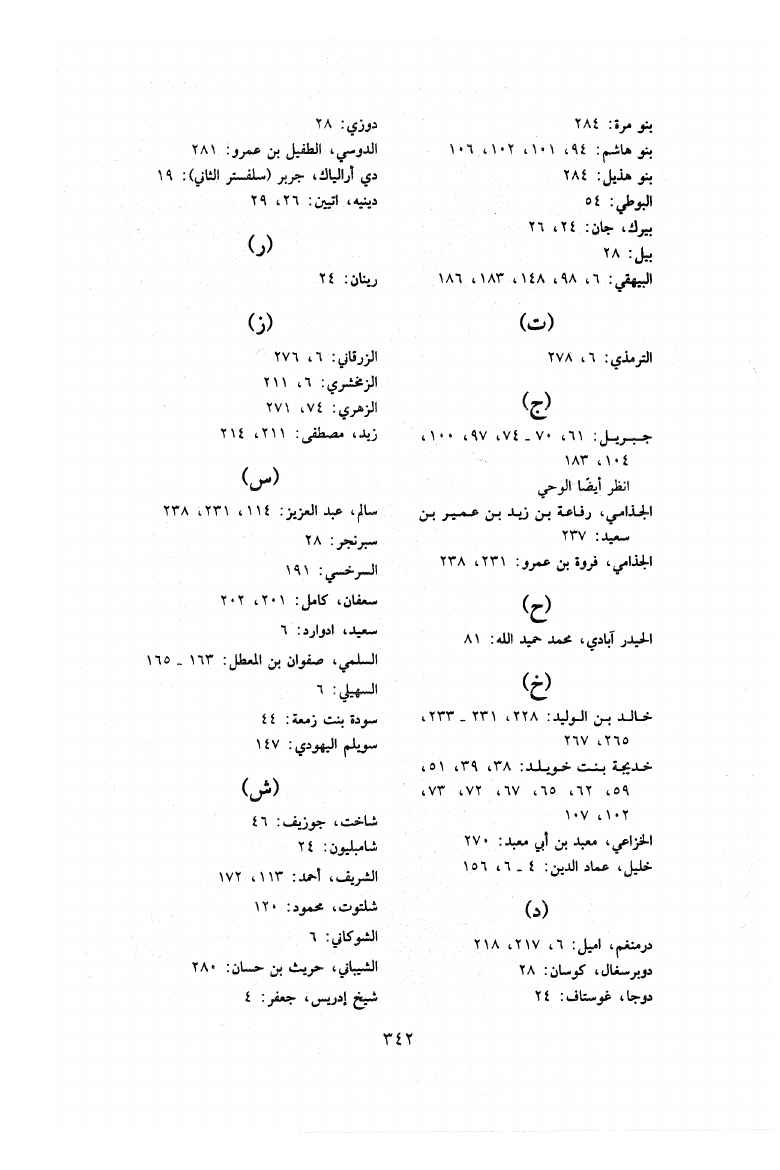 بنو مرة: ٢٨٤
بنو هاشم: ٩٤، ١٠١، ١٠٢، ١٠٦
بنو هذيل: ٢٨٤
البوطي: ٥٤
بيرك، جان: ٢٤، ٢٦
بيل: ٢٨
البيهقي: ٦، ٩٨، ١٤٨، ١٨٣، ١٨٦
(ت)
الترمذي: ٦، ٢٧٨
(ج)
جبريل: ٦١، ٧٠ ـ ٧٤، ٩٧، ١٠٠،
١٠٤، ١٨٣
انظر أيضًا الوحي
الجذامي، رفاعة بن زيد بن عمير بن
سعيد: ٢٣٧
الجذامي، فروة بن عمرو: ٢٣١، ٢٣٨
(ح)
الحيدر آبادي، محمد حميد الله: ٨١
(خ)
خالد بن الوليد: ٢٢٨، ٢٣١ ـ ٢٣٣،
٢٦٥، ٢٦٧
خديجة بنت خويلد: ٣٨، ٣٩، ٥١،
٥٩، ٦٢، ٦٥، ٦٧، ٧٢، ٧٣،
١٠٢، ١٠٧
الخزاعي، معبد بن أبي معبد: ٢٧٠
خليل، عماد الدين: ٤ ـ ٦، ١٥٦
(د)
درمنغم، اميل: ٦، ٢١٧، ٢١٨
دوبرسفال، كوسان: ٢٨
دوجا، غوستاف: ٢٤
دوزي: ٢٨
الدوسي، الطفيل بن عمرو: ٢٨١
دي أرالياك، جربر (سلفستر الثاني): ١٩
دينيه، اتيين: ٢٦، ٢٩
(ر)
رينان: ٢٤
(ز)
الزرقاني: ٦، ٢٧٦
الزمخشري: ٦، ٢١١
الزهري: ٧٤، ٢٧١
زيد، مصطفى: ٢١١، ٢١٤
(س)
سالم، عبد العزيز: ١١٤، ٢٣١، ٢٣٨
سبرنجر: ٢٨
السرخسي: ١٩١
سعفان، كامل: ٢٠١، ٢٠٢
سعيد، ادوارد: ٦
السلمي، صفوان بن المعطل: ١٦٣ ـ ١٦٥
السهيلي: ٦
سودة بنت زمعة: ٤٤
سويلم اليهودي: ١٤٧
(ش)
شاخت، جوزيف: ٤٦
شامبليون: ٢٤
الشريف، أحمد: ١١٣، ١٧٢
شلتوت، محمود: ١٢٠
الشوكاني: ٦
الشيباني، حريث بن حسان: ٢٨٠
شيخ إدريس، جعفر: ٤
٣٤٢